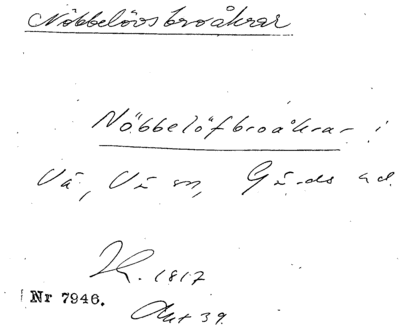 Nöbbelövsbroåkrar
Nöbbelöfbroåkrar i
Vä, Vä sn, Gärds hd.
1817
Nr 7946.
Akt 39.